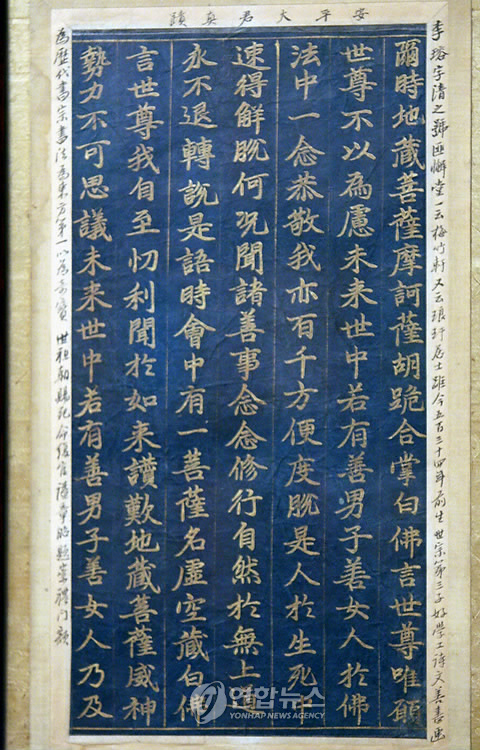 安平大君真蹟
李瑢字清之號匪懈堂一云梅竹軒又云琅玕居士距今五百三十四年前生 世宗第三子好學工詩文善書画
爾時地藏菩薩摩訶薩胡跪合掌白佛言世尊唯願
世尊不以為慮未来世中若有善男子善女人於佛
法中一念恭敬我亦百千方便度脫是人於生死中
速得解脫何況聞諸善事念念修行自然於無上道
永不退轉說是語時會中有一菩薩名虛空藏白佛
言世尊我自至忉利聞於如来讚歎地藏菩薩威神
勢力不可思議未来世中若有善男子善女人乃及
為歷代書宗書法為東方第一以為奇寶 世祖朝賜死命復官諡章昭題崇禮門額
연합뉴스
YONHAP NEWS AGENCY